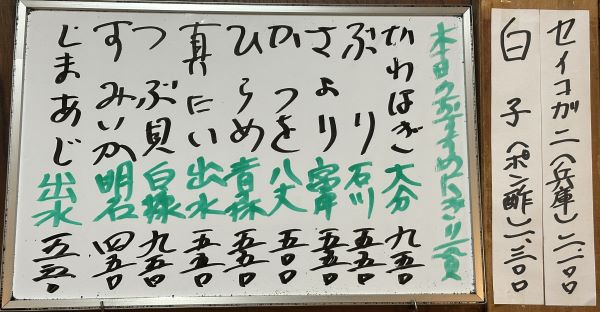 セイコガニ(兵庫)
白子(ポン酢)
本日のおすすめにぎり一貫
かわはぎ 大分 九五〇
ぶり 石川 五五〇
さより 五五〇
かつを 八丈 五〇〇
ひらめ 青森 五五〇
真だい 出水 五五〇
つぶ貝 白糠 九五〇
すみいか 明石 四五〇
しまあじ 出水 五五〇